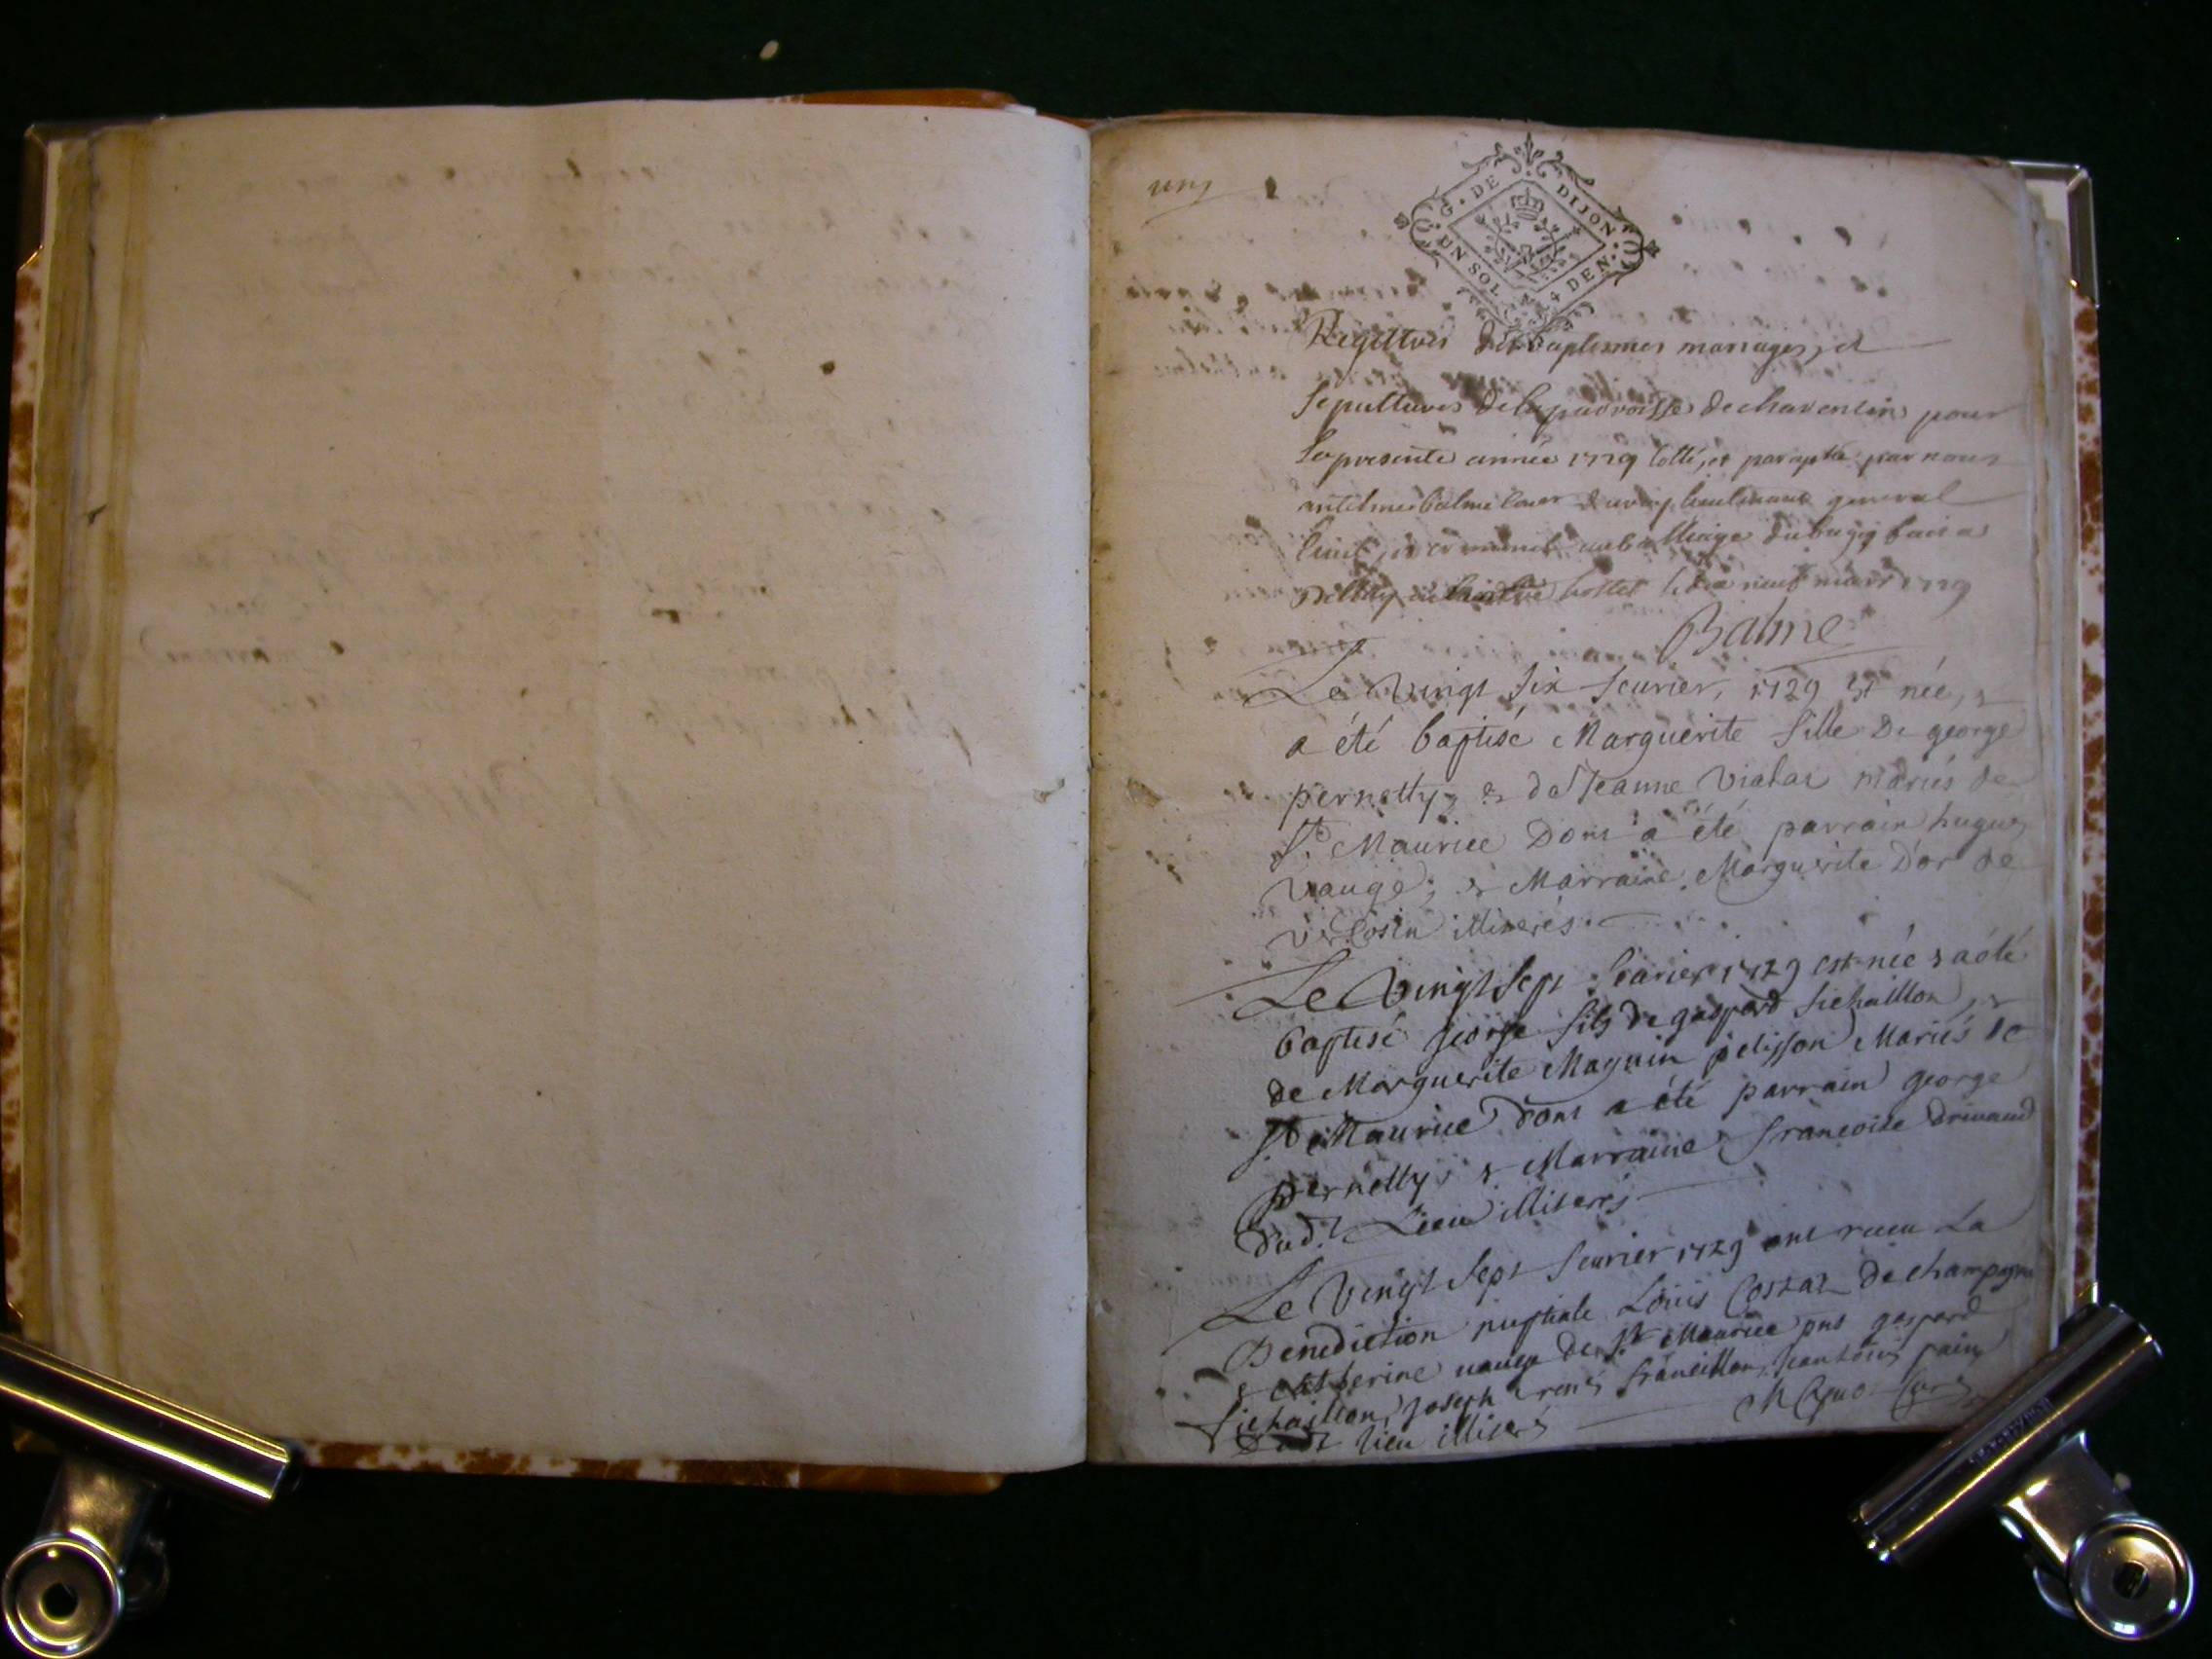 un
G. DE DIJON
UN SOL 4 DEN.
Registres des baptesmes mariages, et
sepultures de la parroisse de charencin pour
la presente année 1729 cotté, et paraphé par nous
antelme balme lieutenant general
civil, et criminel au balliage du bugey
a Belley hostel le dix neuf 1729
Balme
Le vingt six feurier, 1729 est née, &
a été baptisé Marguerite fille De george
pernetty, & de Jeanne Viallar mariés de
St. Maurice Dont a été parrain hugue
vauge; & Marraine, Marguerite D'or de
illiterés.
Le vingt sept feurier 1729 est née & a été
baptisé george fils de gaspard fichaillon, &
de Marguerite Magnin pelisson Mariés de
St. Maurice dont a été parrain george
pernetty, & Marraine francoise drivaud
dud. Lieu illiterés
Le vingt sept feurier 1729 ont receu La
Benediction nuptiale Louis Costaz De champagne
& catherine vauge de St. Maurice pns gaspard
fichaillon, joseph
dudt lieu illiterés